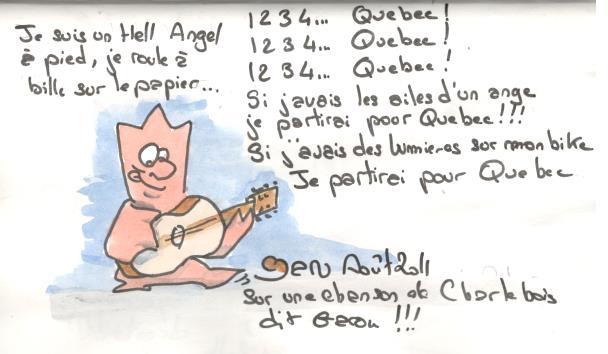 Je suis un Hell Angel
à pied, je roule à
bille sur le papier...
1 2 3 4... Quebec!
1 2 3 4... Quebec!
1 2 3 4... Quebec!
Si j'avais les ailes d'un ange
je partirai pour Quebec!!!
Si j'avais des lumieres sur mon bike
Je partirai pour Quebec
Août 2011
sur une chanson de Charlebois
dit Garou!!!